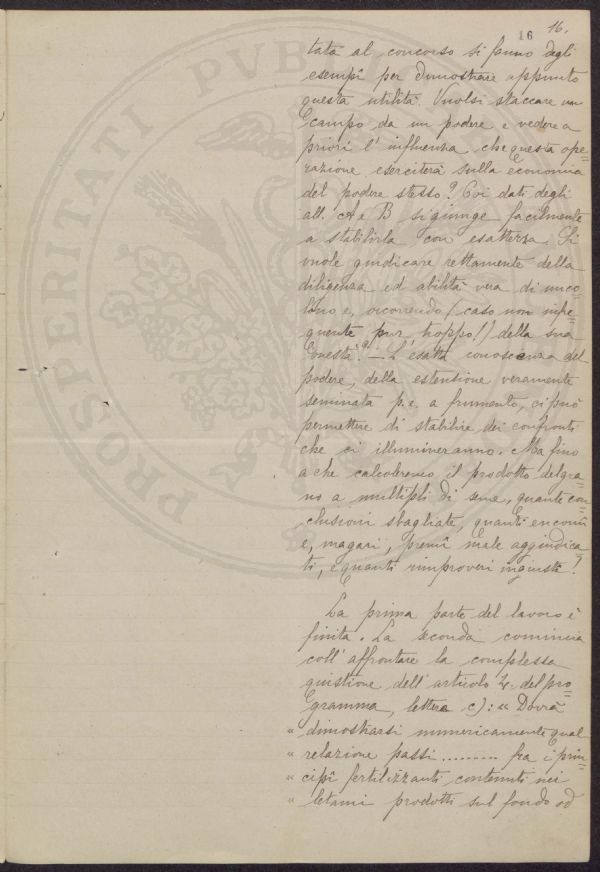 16 16.
tata al concorso si fanno degli
esempî per dimostrare appunto
questa utilità. Vuolsi staccare un
campo da un podere e vedere a
priori l'influenza che questa ope-
razione eserciterà sulla economia
del podere stesso? Coi dati degli
all. A e B si giunge facilmente
a stabilirla con esattezza. Si
vuole giudicare rettamente della
diligenza ed abilità vera di un co-
lono e, occorrendo (caso non infre-
quente pur troppo!) della sua
onestà? — L'esatta conoscenza del
podere, della estensione veramente
seminata p.e. a frumento, ci può
permettere di stabilire dei confronti
che ci illumineranno. Ma fino
a che calcoleremo il prodotto del gra-
no a multipli di seme, quante con-
clusioni sbagliate, quanti encomî
e, magari, premî male aggiudica-
ti, e quanti rimproveri ingiusti!
La prima parte del lavoro è
finita. La seconda comincia
coll'affrontare la complessa
quistione dell'articolo 2. del pro-
gramma, lettera c): « Dovrà
« dimostrarsi numericamente qual
« relazione passi ......... fra i prin-
« cipî fertilizzanti contenuti nei
« letami prodotti sul fondo od
PROSPERITATI PUB